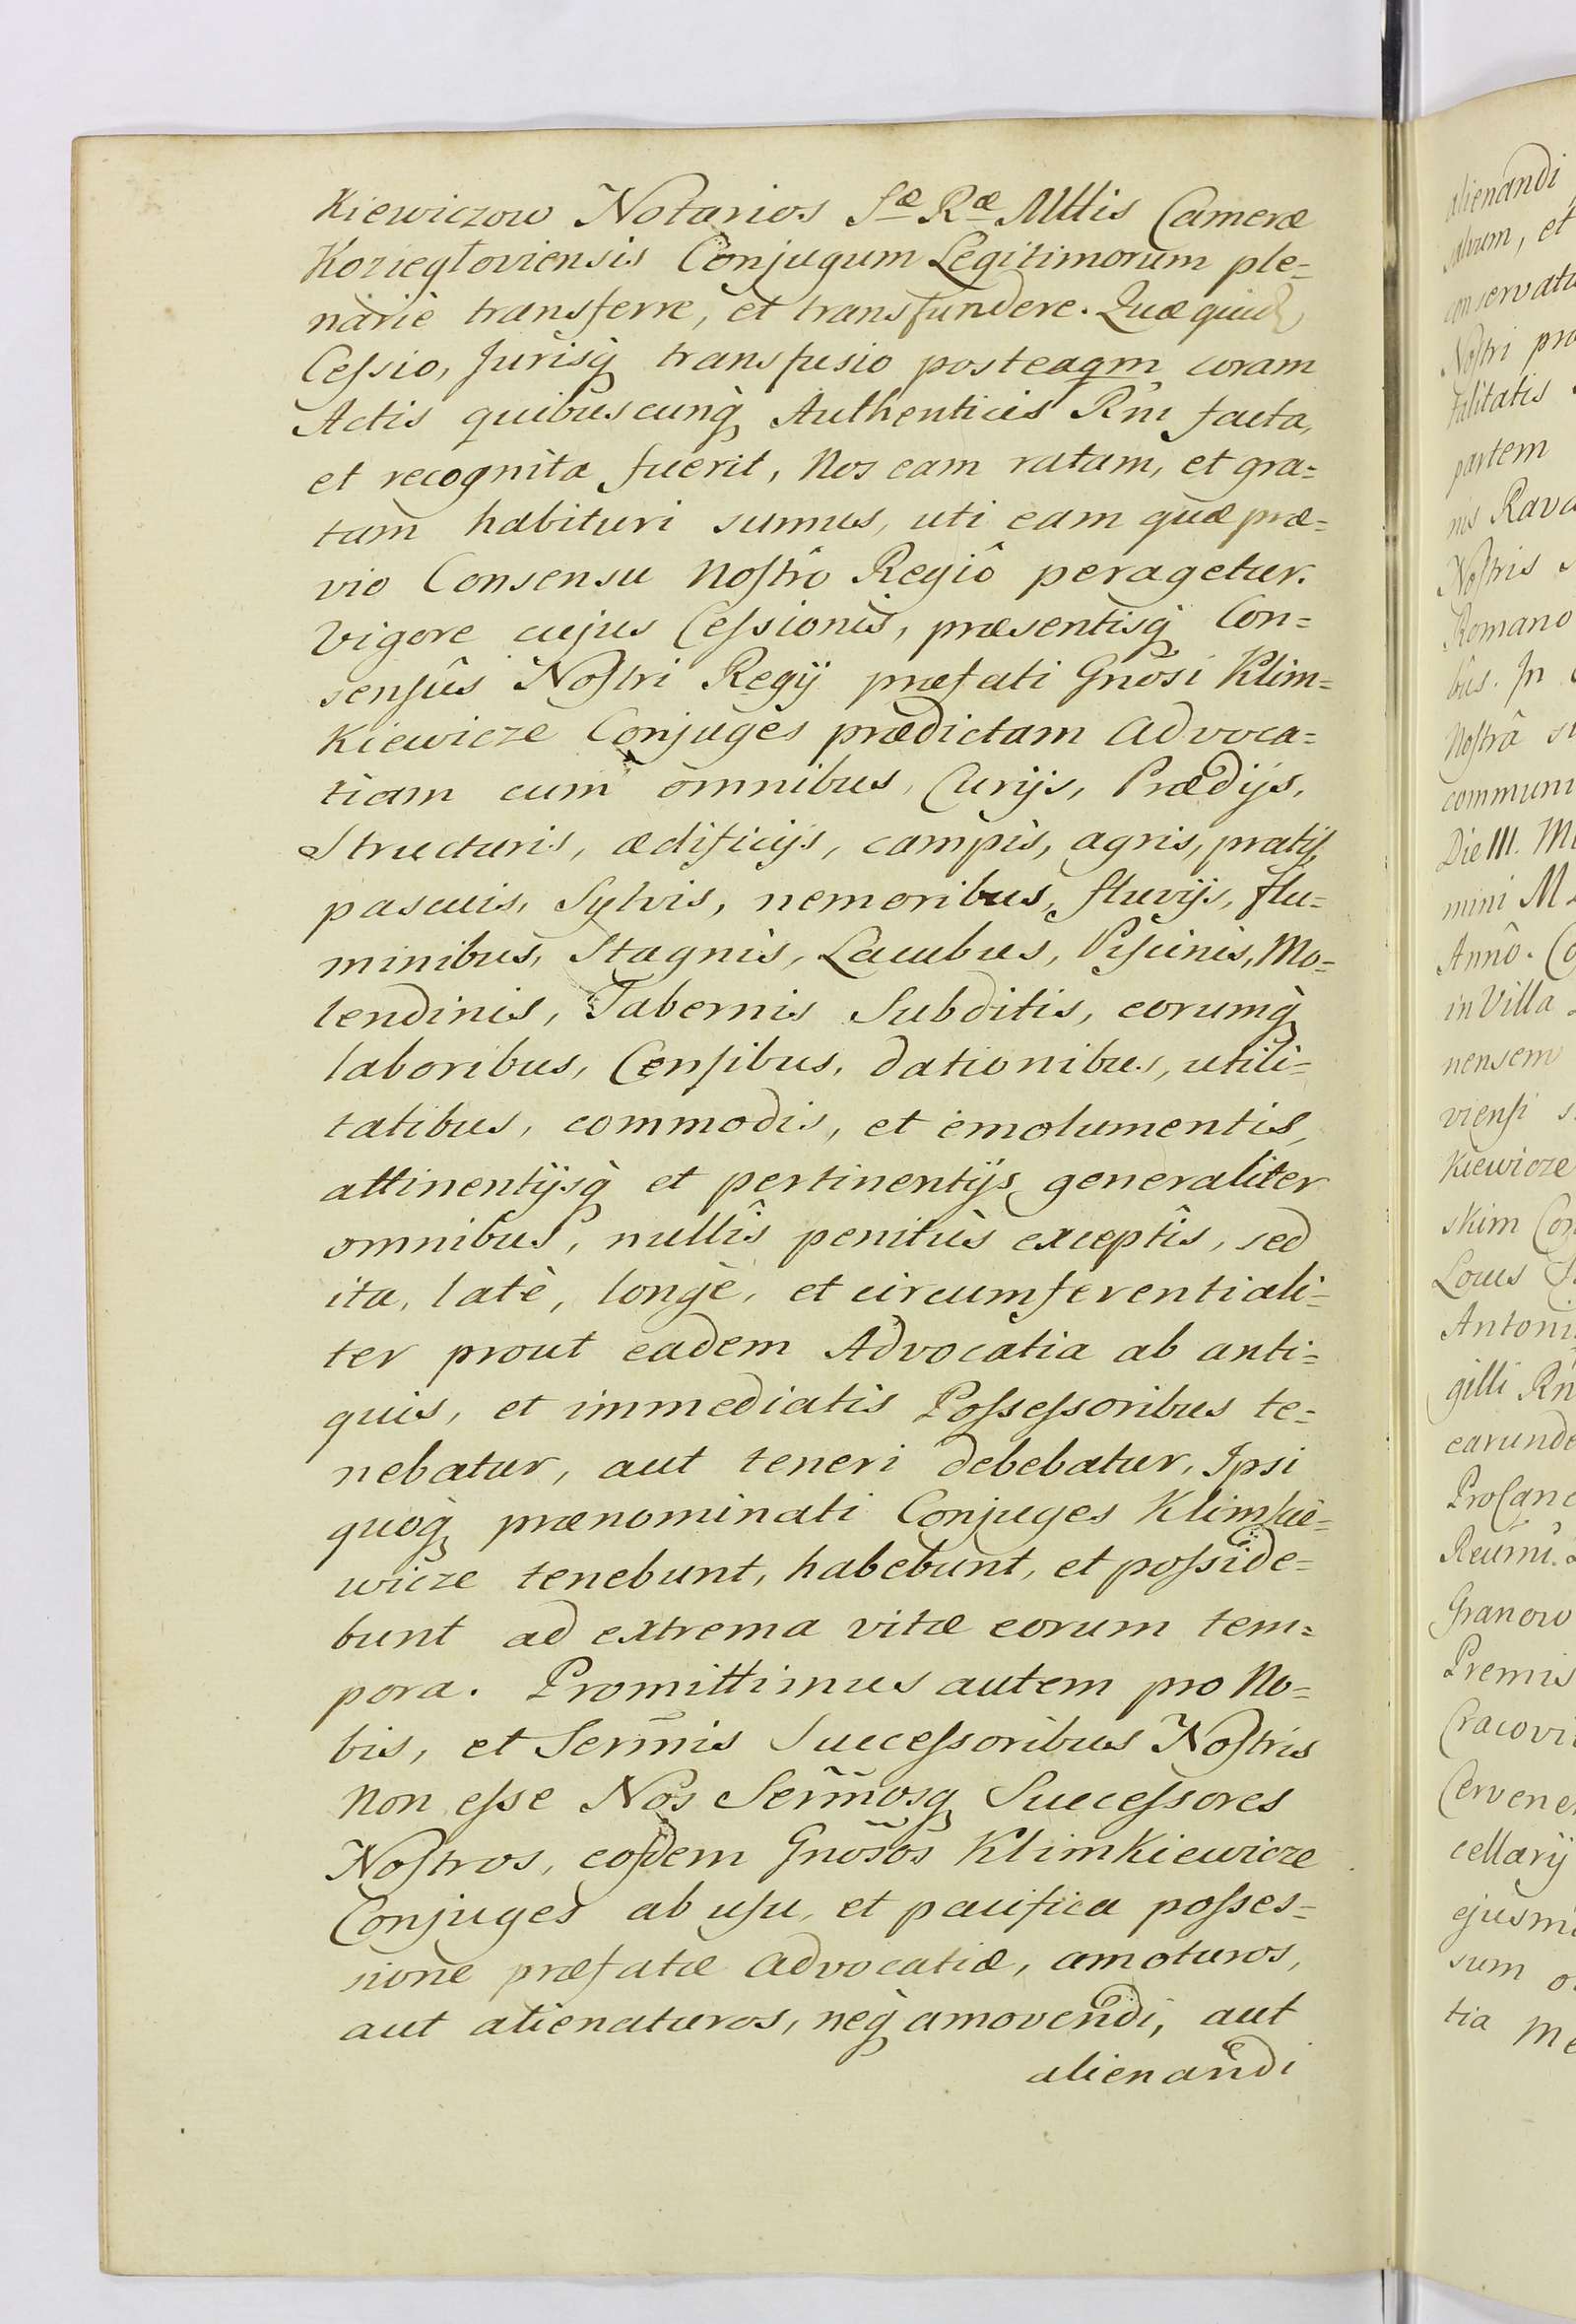 Kiewiczow Notarios Sæ Ræ Mttis Cameræ
Koziegłoviensis Conjugum Legitimorum ple=
nàriè transferre, et transfundere. Quæ quid
Ceſsio, Jurisq̀ transfusio posteaqm̃ coram
Actis quibuscunq̀ Authenticis Rñi facta,
et recognita fuerit, Nos eam ratam, et gra=
tam habituri sumus, uti eam quæ præ=
vio Consensu noſtrô Regiô peragetur.
Vigore cujus Ceſsionis, præsentisq̀ Con=
senſûs Noſtri Regij præfati Gnõsi Klim=
Kiewicze Conjuges prædictam advoca=
tiam cum omnibus, Curijs, Prædijs,
Structuris, ædificijs, campis, agris, pratis,
pascuis, Sylvis, nemoribus, fluvijs, flu=
minibus, Stagnis, Lacubus, Piſcinis, Mo=
lendinis, Tabernis Subditis, eorumq̀
laboribus, Cenſibus, dationibus, utili=
tatibus, commodis, et emolumentis,
attinentijsq̀ et pertinentijs generaliter
omnibus, nullîs penitùs exceptîs, sed
ita, latè, longè, et circumferentiali=
ter prout eadem Advocatia ab anti=
quis, et immediatis Poſseſsoribus te=
nebatur, aut teneri debebatur, Ipsi
quoq̀ prænominati Conjuges Klimkie=
wicze tenebunt, habebunt, et poſside=
bunt ad extrema vitæ eorum tem=
pora. Promittimus autem pro No=
bis, et Serm̃is Succeſsoribus Noſtris
non eſse Nos Serm̃osq Succeſsores
Noſtros, eoſdem Gnõsos Klimkiewicze
Conjuges ab uſu, et pacifica poſses=
sione præfatæ advocatiæ, amoturos,
aut alienaturos, neq̀ amovendi, aut
alienandi
alienandi
conservatu
Noſtri
talitatis
partem
nis Rava
Noſtris
Romano
bûs. In
noſtrâ
Die III.
mini M
Annô.
in Villa
nensem
vienſi
Kiewicze
skim
Antoni
gilli
earunde
Granow
Premis
Cracovi
cellarij
sum
tia